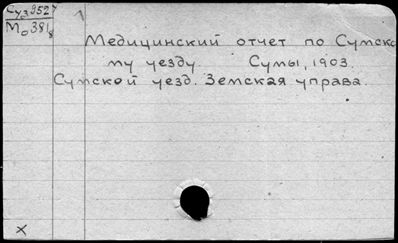 Су 39527
Мо 381
Медицинский отчет по Сумско
му уезду. Сумы, 1903.
Сумской уезд. Земская управа.
x